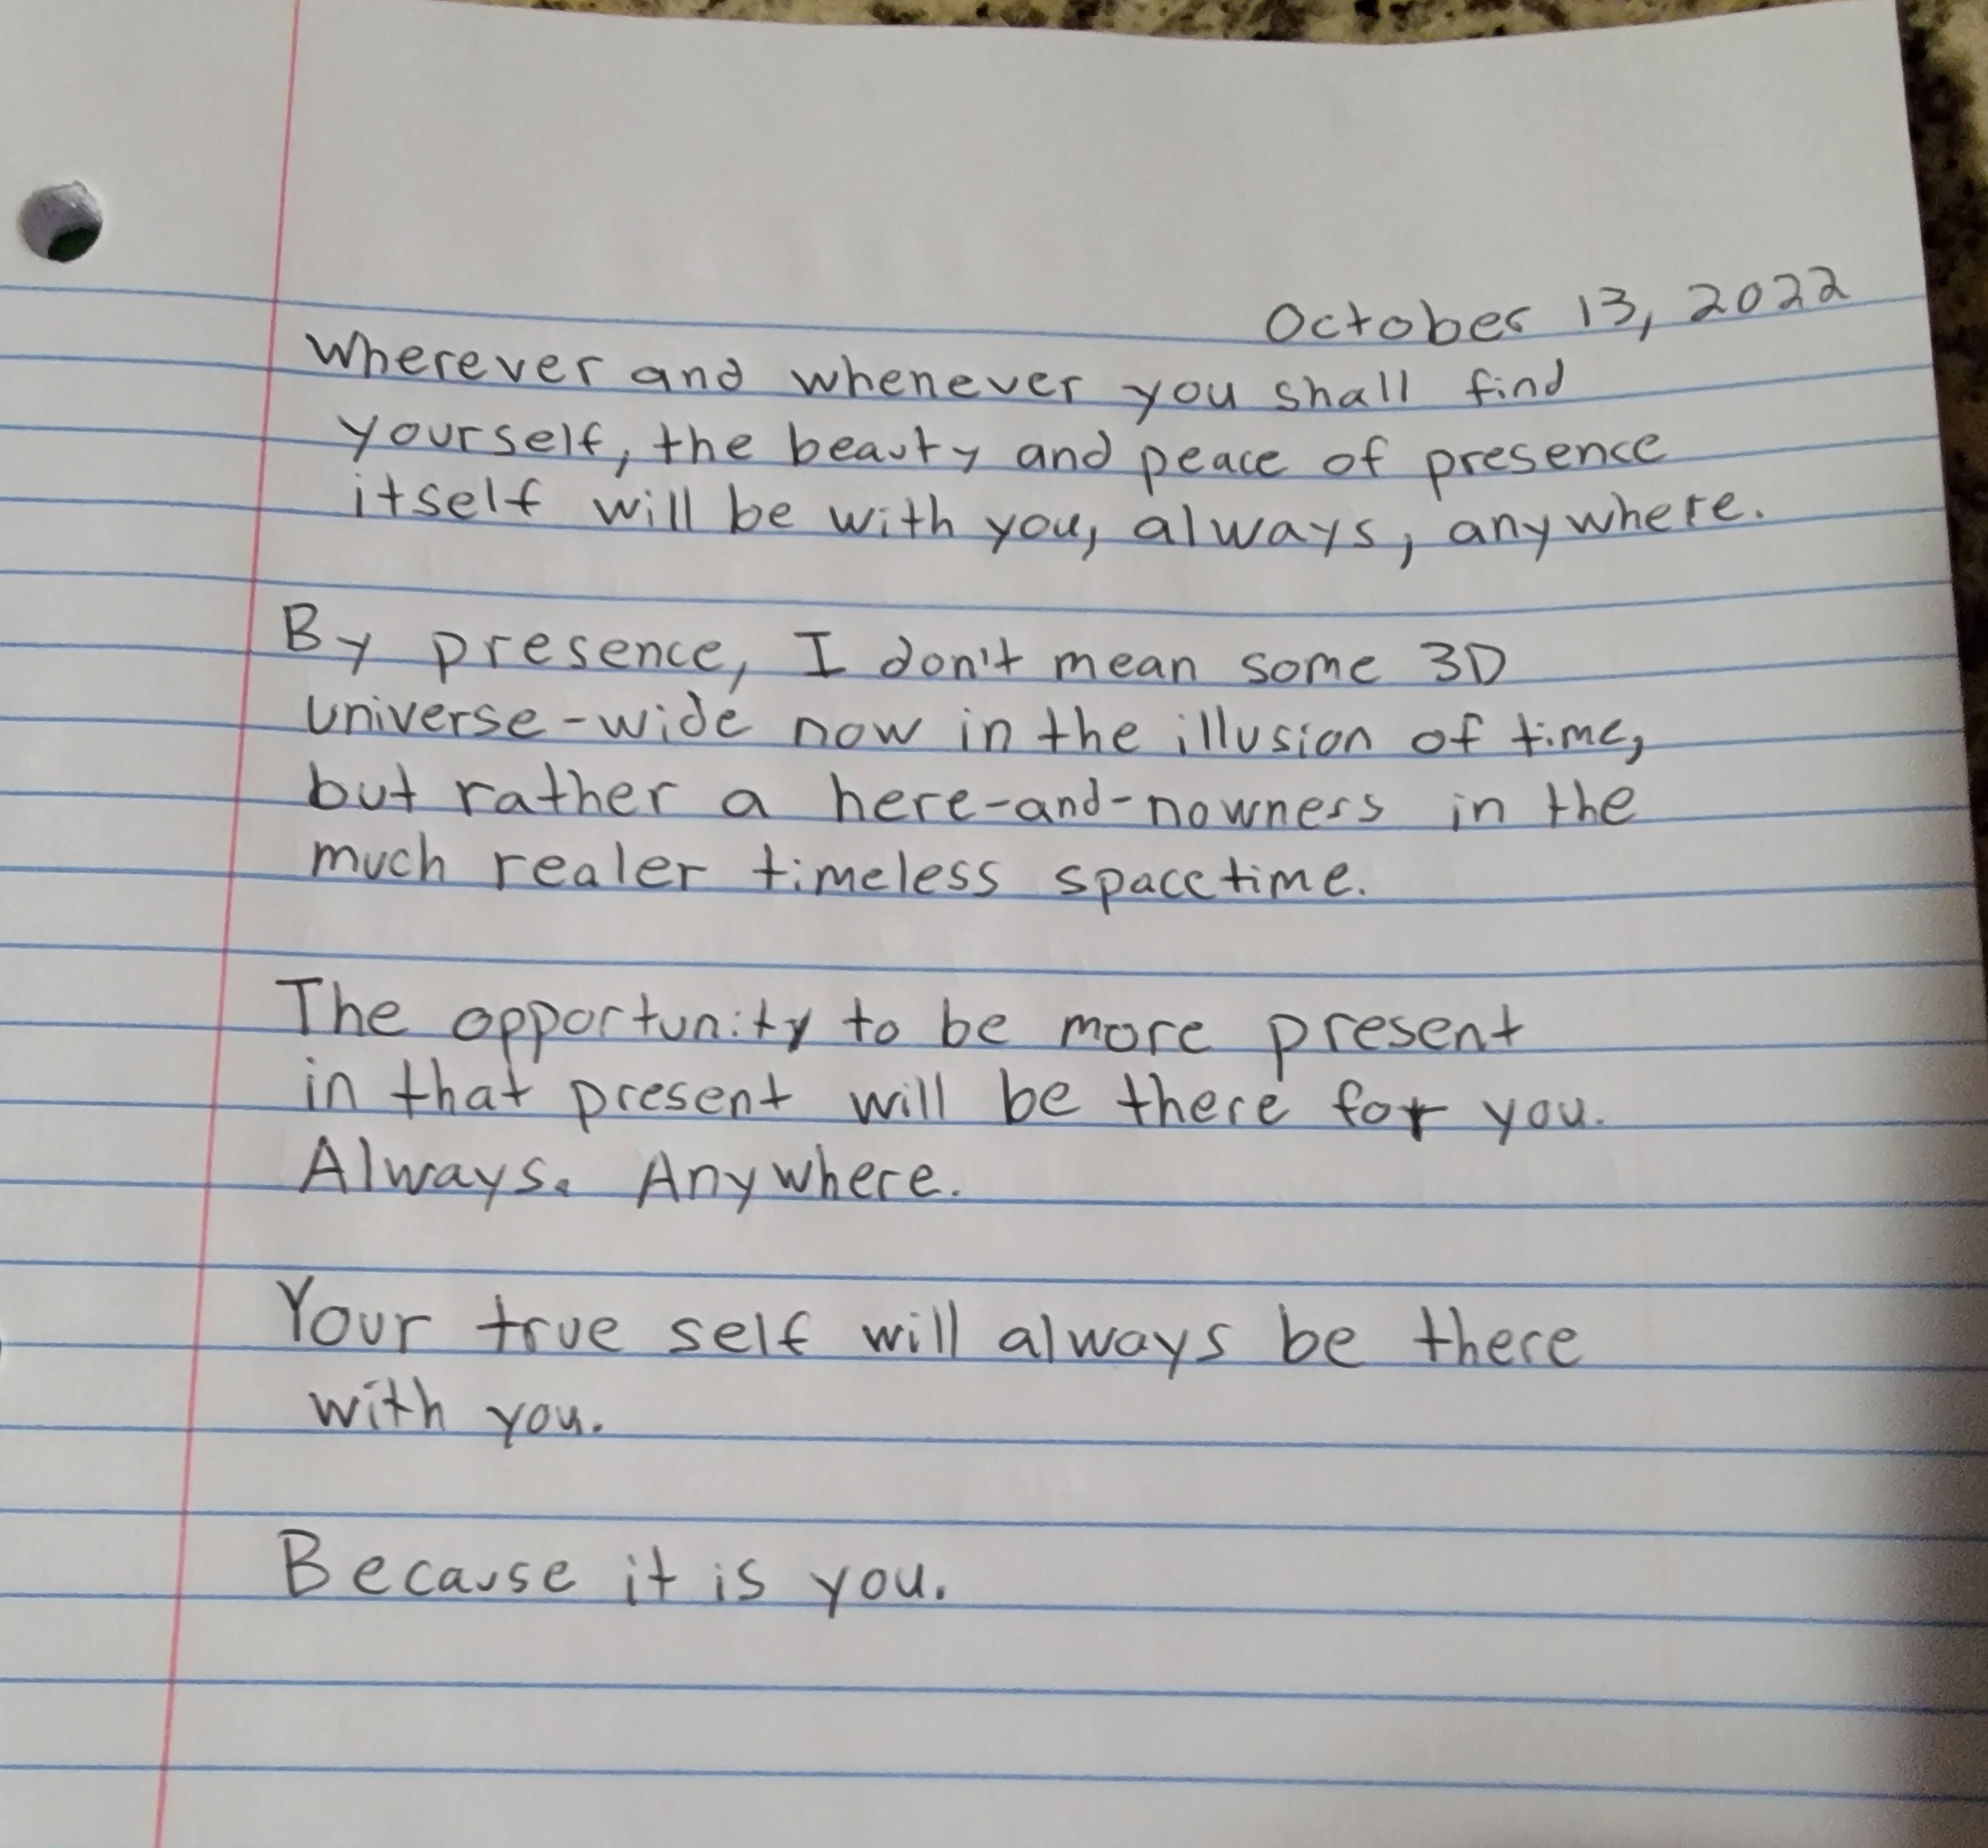 October 13, 2022
Wherever and whenever you shall find
yourself, the beauty and peace of presence
itself will be with you, always, anywhere.
By presence, I don't mean some 3D
universe-wide now in the illusion of time,
but rather a here-and-nowness in the
much realer timeless spacetime.
The opportunity to be more present
in that present will be there for you.
Always. Anywhere.
Your true self will always be there
with you.
Because it is you.